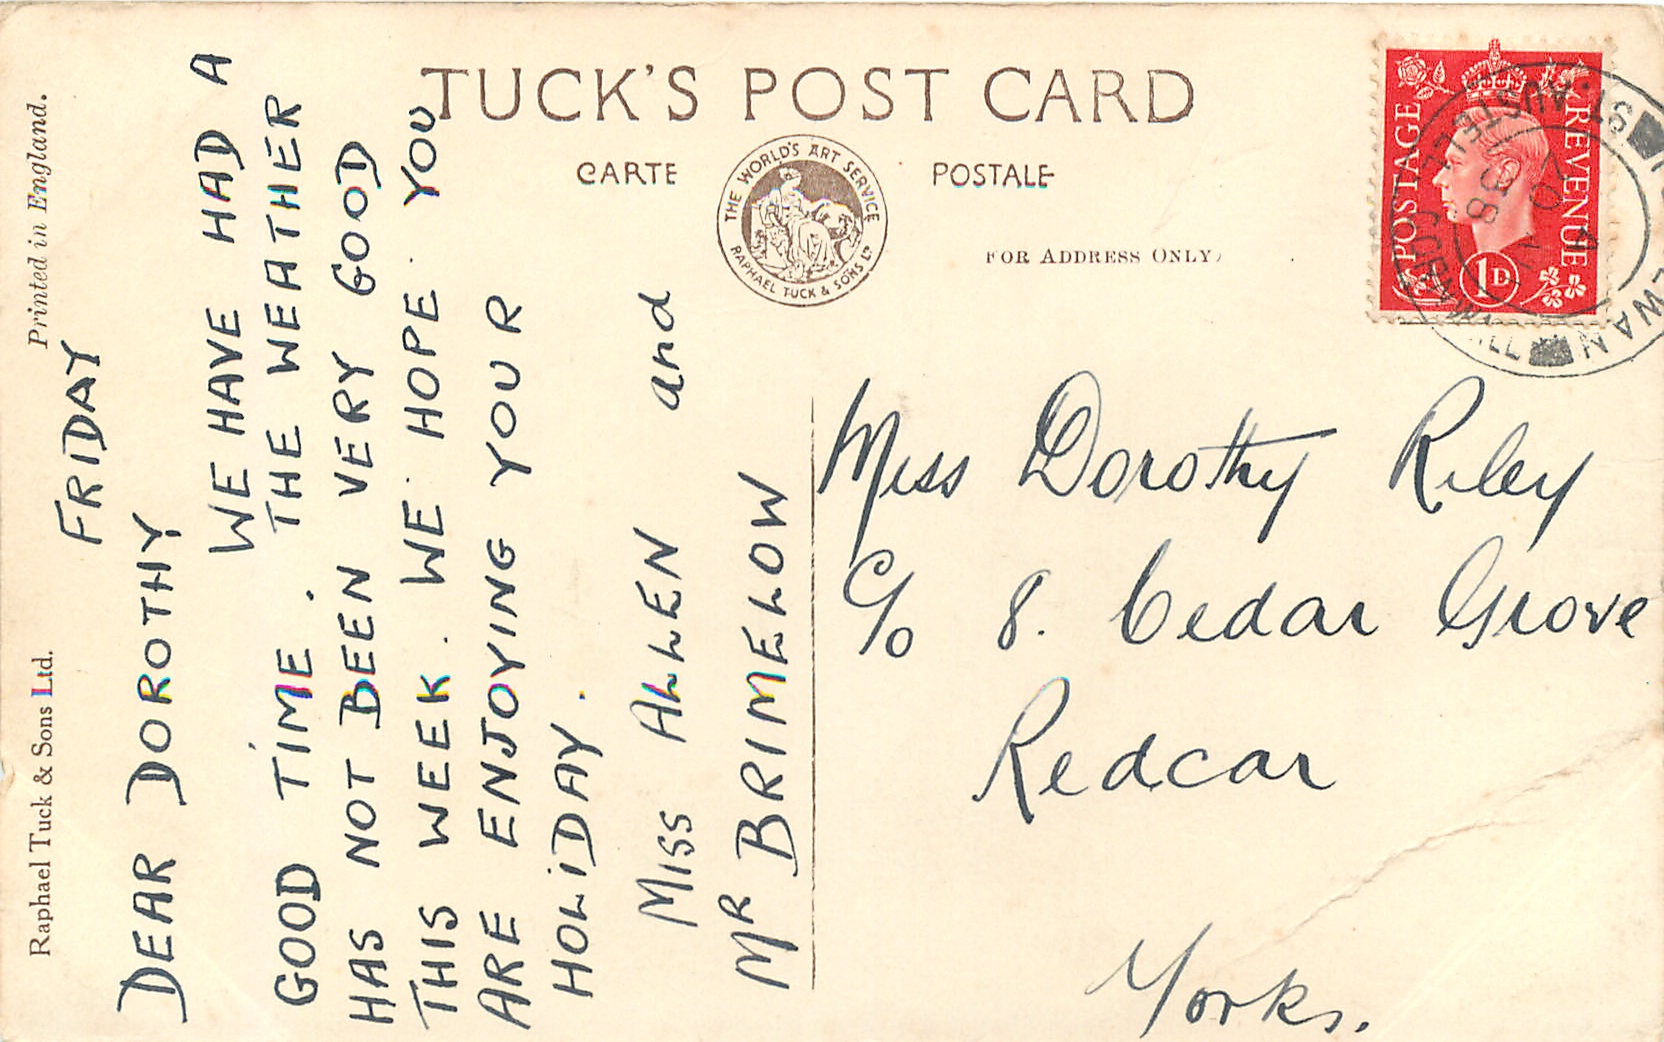 TUCK'S POST CARD
CARTE POSTALE
THE WORLD'S ART SERVICE
RAPHAEL TUCK & SONS LTD
FOR ADDRESS ONLY
POSTAGE
REVENUE
1D
ST. AUSTELL
CORNWALL
1938
Raphael Tuck & Sons Ltd.
Printed in England.
FRIDAY
DEAR DOROTHY
WE HAVE HAD A
GOOD TIME. THE WEATHER
HAS NOT BEEN VERY GOOD
THIS WEEK. WE HOPE YOU
ARE ENJOYING YOUR
HOLIDAY.
MISS ALLEN and
MR BRIMELOW
Miss Dorothy Riley
C/o 8. Cedar Grove
Redcar
Yorks.